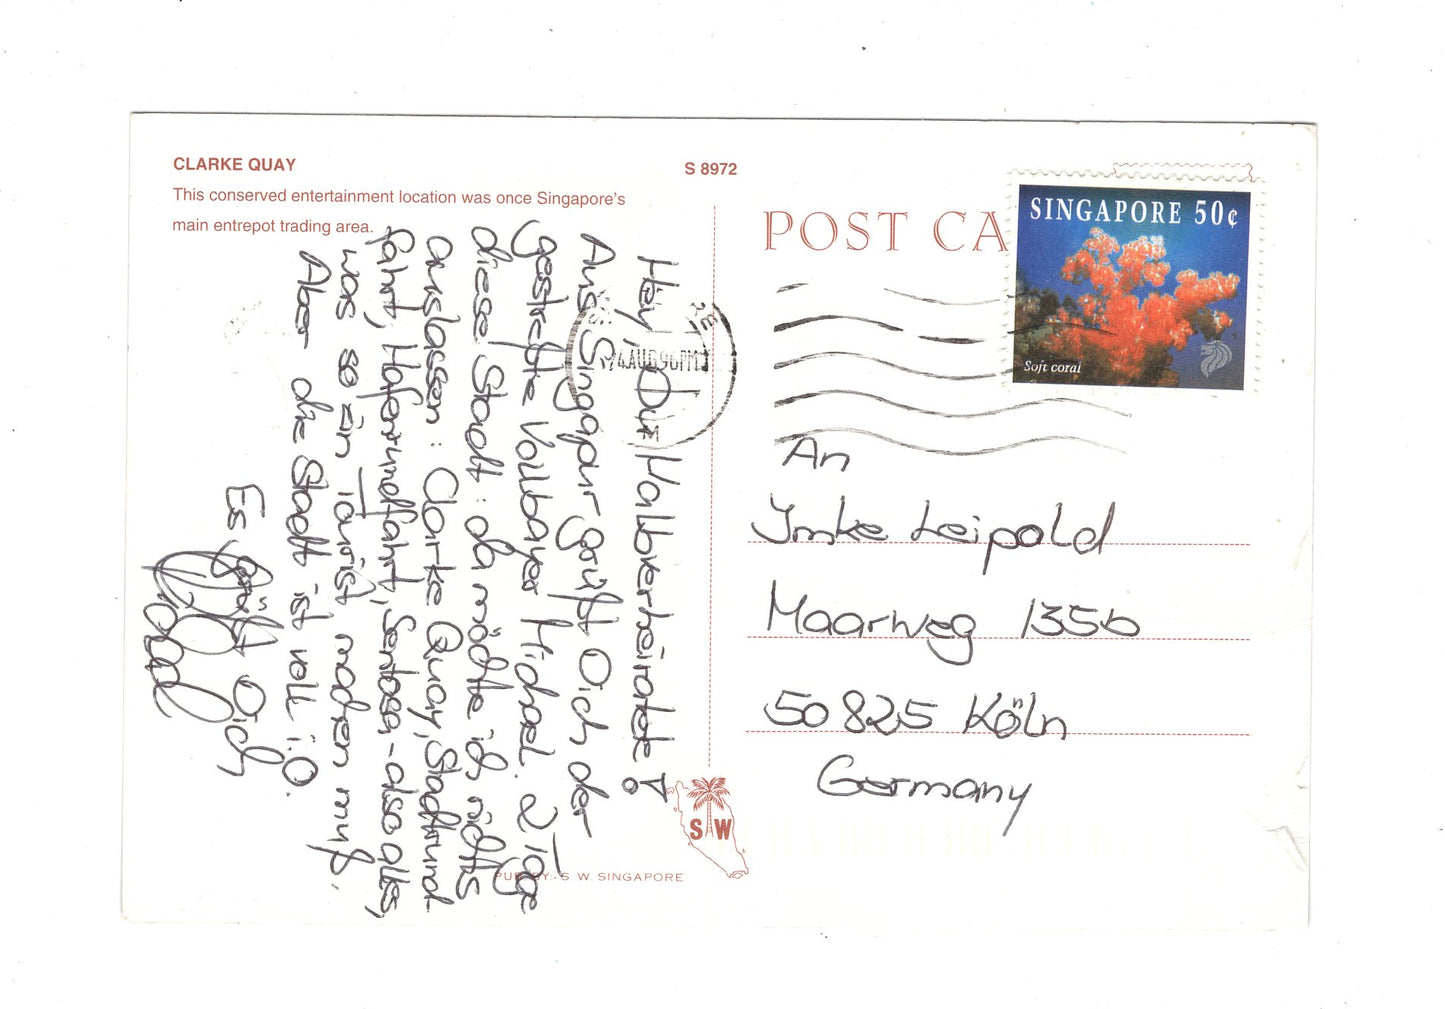 CLARKE QUAY
This conserved entertainment location was once Singapore's
main entrepot trading area.
S 8972
POST CA
SINGAPORE 50¢
Soft coral
4 AUG 96 PM
Hey, Du Halbverheiratete!
Aus Singapur grüßt Dich der
gestreßte Vollbayer Michael. 2 Tage
diese Stadt: da möchte ich nichts
auslassen: Clarke Quay, Stadtrund-
fahrt, Hafenrundfahrt, Sentosa - also alles,
was so ein Tourist machen muß.
Aber die Stadt ist voll i.O.
Es grüßt Dich
An
Imke Leipold
Maarweg 135b
50825 Köln
Germany
S W
PUB. BY:- S. W. SINGAPORE